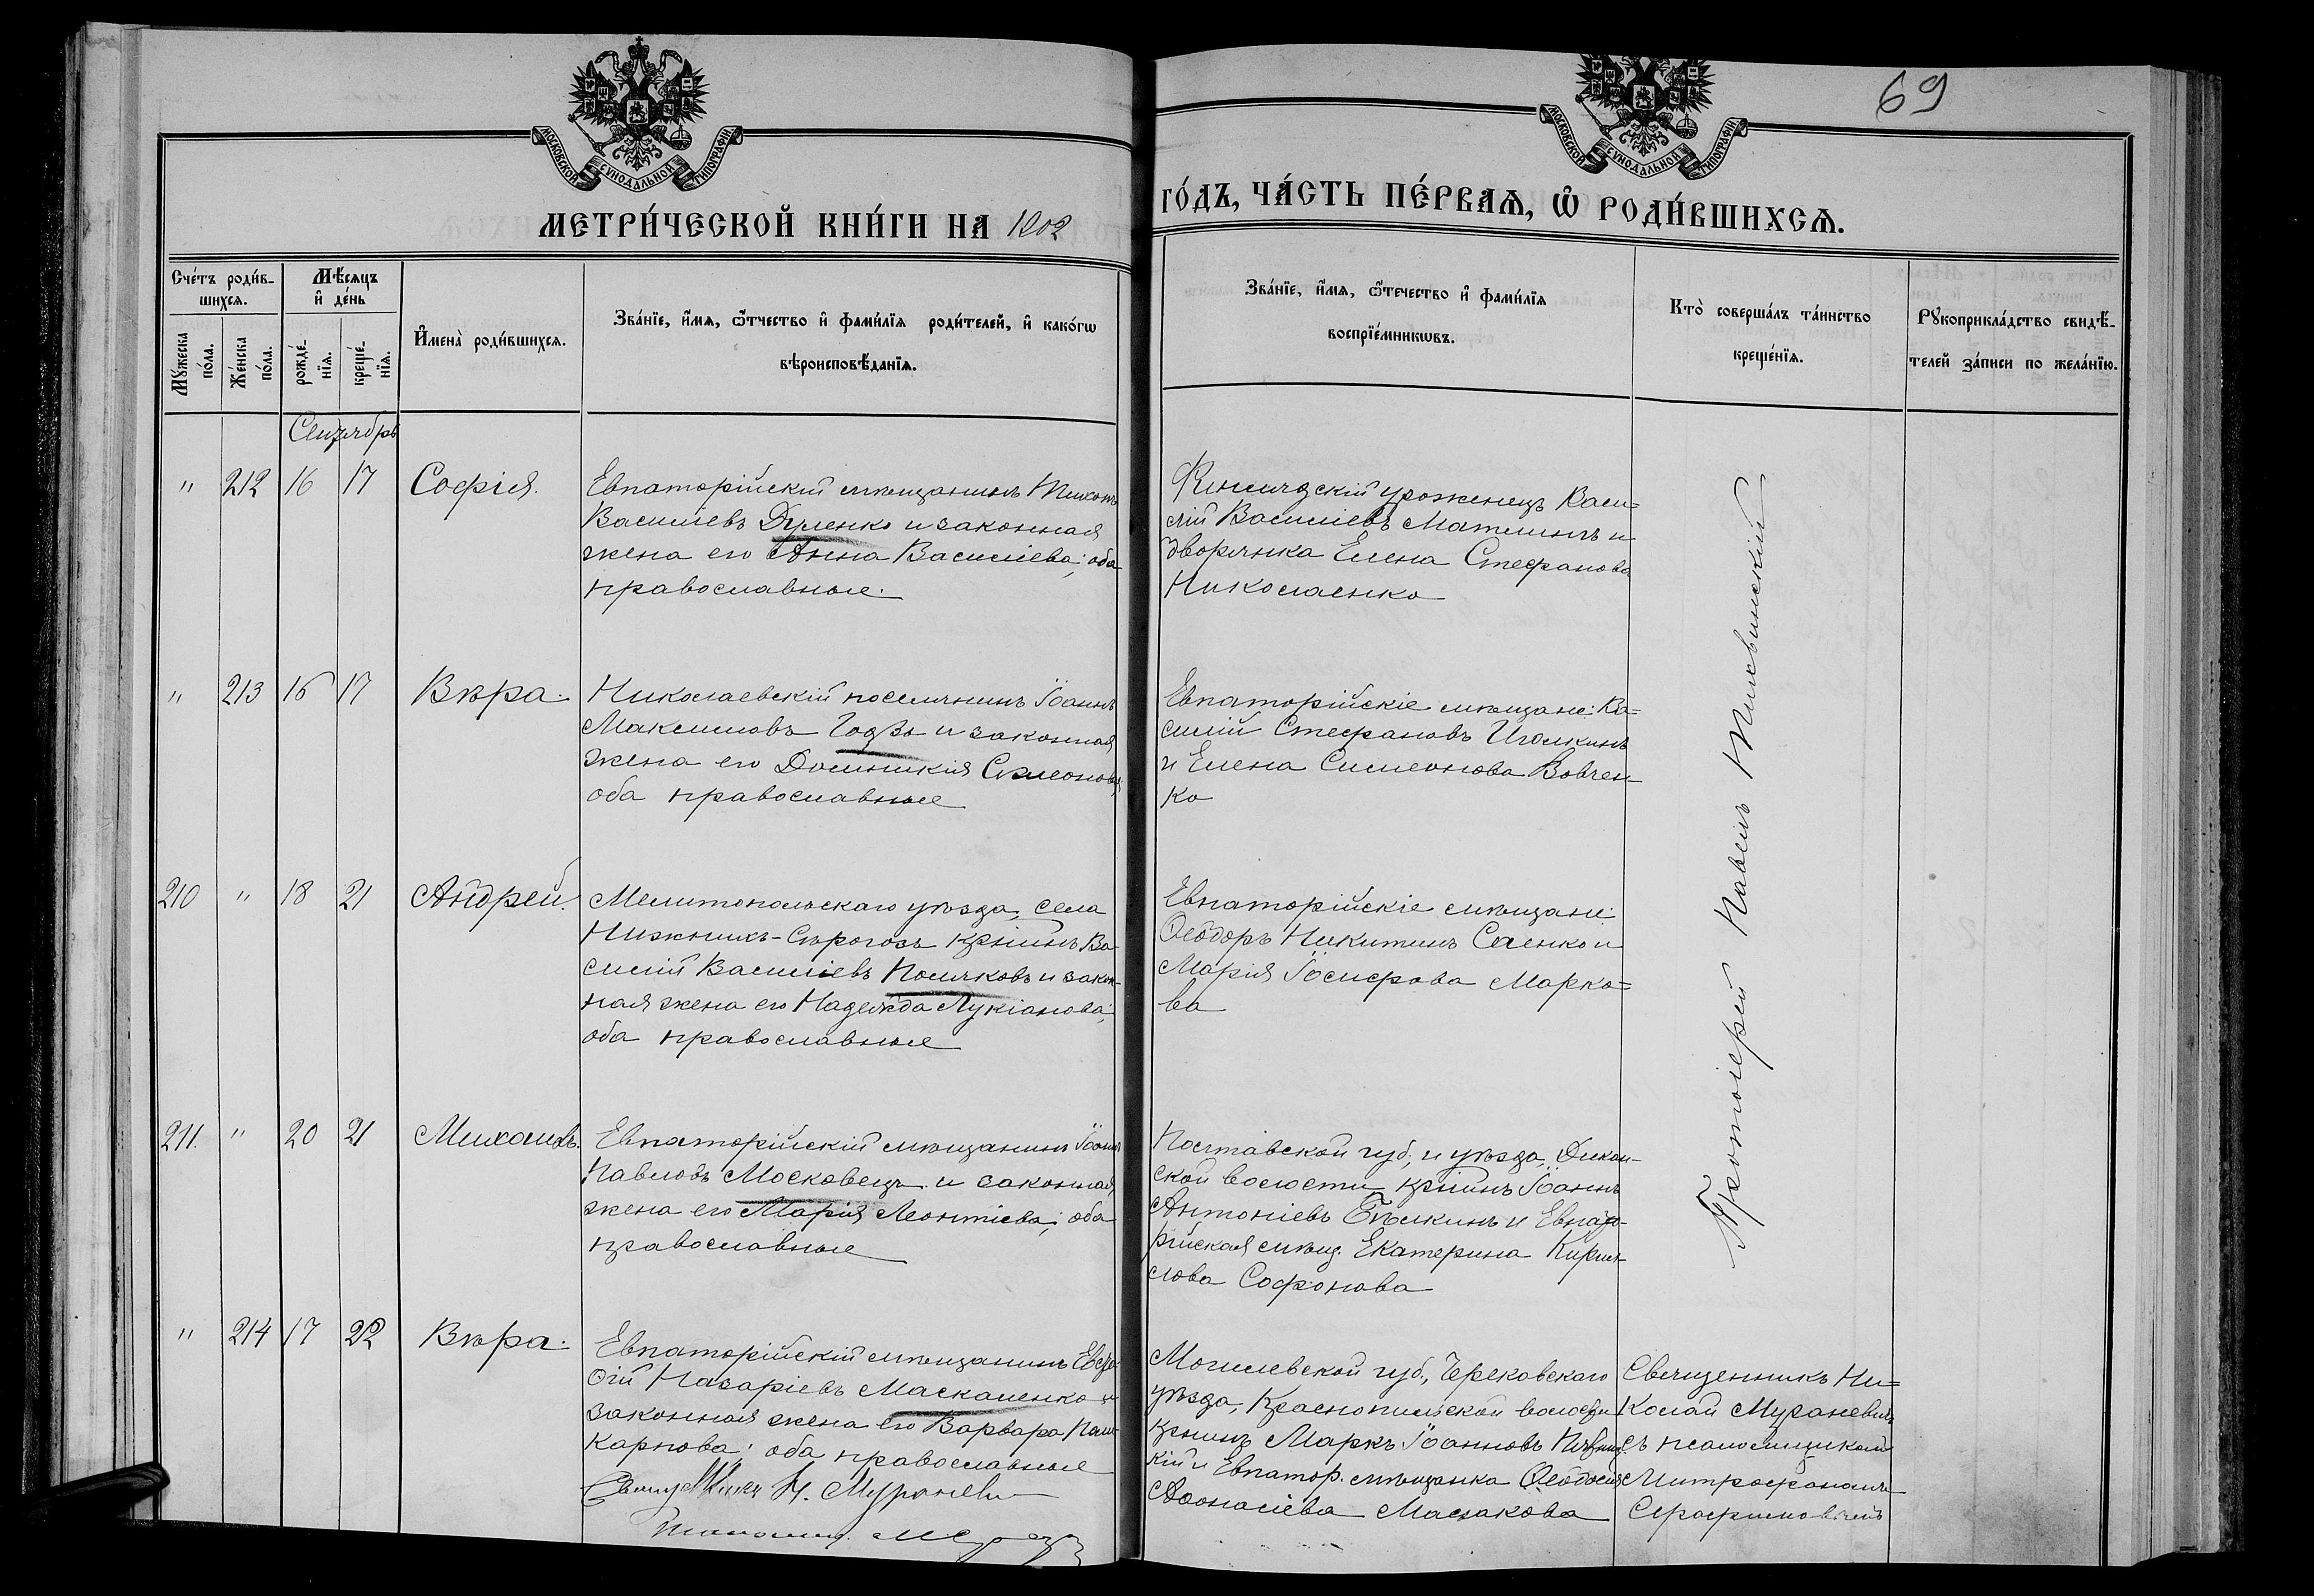 69
МОСКОВСКОЙ СѴНОДАЛЬНОЙ ТИПОГРАФІИ
МОСКОВСКОЙ СѴНОДАЛЬНОЙ ТИПОГРАФІИ
МЕТРИ́ЧЕСКОЙ КНИ́ГИ НА 1902
ГО́ДЪ, ЧА́СТЬ ПЕ́РВАѦ, Ѽ РОДИ́ВШИХСѦ.
Сче́тъ роди́в-
шихсѧ.
Мѣ́сѧцъ
и҆ де́нь
Мꙋ́жеска
по́ла.
Же́нска
по́ла.
рожде́-
нїѧ.
креще́-
нїѧ.
И҆мена̀ роди́вшихсѧ.
Зва́нїе, и҆́мѧ, ѻ҆́тчество и҆ фами́лїѧ роди́телей, и҆ како́гѡ
вѣроисповѣ́данїѧ.
Зва́нїе, и҆́мѧ, ѻ҆те́чество и҆ фами́лїѧ
воспрїе́мникѡвъ.
Кто̀ соверша́лъ та́инство
креще́нїѧ.
Рꙋкоприкла́дство свидѣ́-
телей за́писи по жела́нїю.
Сентябрь
" 212 16 17 Софія.
Евпаторійскій мѣщанинъ Тихонъ
Василіевъ Дуленко и законная
жена его Анна Василіева; оба
православные.
уроженецъ Васи=
лій Василіевъ и
дворянка Елена Стефанова
Николаенко
" 213 16 17 Вѣра.
Николаевскій поселянинъ Іоаннъ
Максимовъ и законная
жена его Домникія Симеонова,
оба православные
Евпаторійскіе мѣщане: Ва=
силій Стефановъ Иголкинъ
и Елена Симеонова Вовчен-
ко
210 " 18 21 Андрей.
Мелитопольскаго уѣзда, села
Нижнихъ-Сѣрогозъ крнинъ Ва-
силій Василіевъ Поляковъ и закон-
ная жена его Надежда Лукіанова;
оба православные
Евпаторійскіе мѣщане:
Ѳеодоръ Никитинъ Саенко и
Марія Іосифова Марко=
ва
211. " 20 21 Михаилъ.
Евпаторійскій мѣщанинъ Іоаннъ
Павловъ Московецъ и законная
жена его Марія Леонтіева; оба
православные
Полтавской губ., и уѣзда, Дикан-
ской волости крнинъ Іоаннъ
Антоніевъ Бѣлкинъ и Евпато-
рійская мѣщ. Екатерина Кирил-
лова Софонова
Протоіерей Павелъ
" 214 17 22 Вѣра.
Евпаторійскій мѣщанинъ
Назаріевъ Маскаленко и
законная жена его Варвара
Карпова; оба православные
Священникъ Н. Мураневичъ
Могилевской губ., Чериковскаго
уѣзда, Краснопольской волости
крнинъ Маркъ Іоанновъ
кій и Евпатор. мѣщанка Ѳеодосія
Аѳонасіева Масакова
Священникъ Ни=
колай Мураневичъ
съ псаломщикомъ
Митрофаномъ
Серафимовичемъ